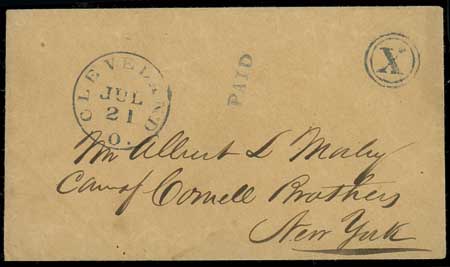 CLEVELAND
JUL
21
O.
PAID
X
Mr Albert L Morley
Care of Cornell Brothers
New York